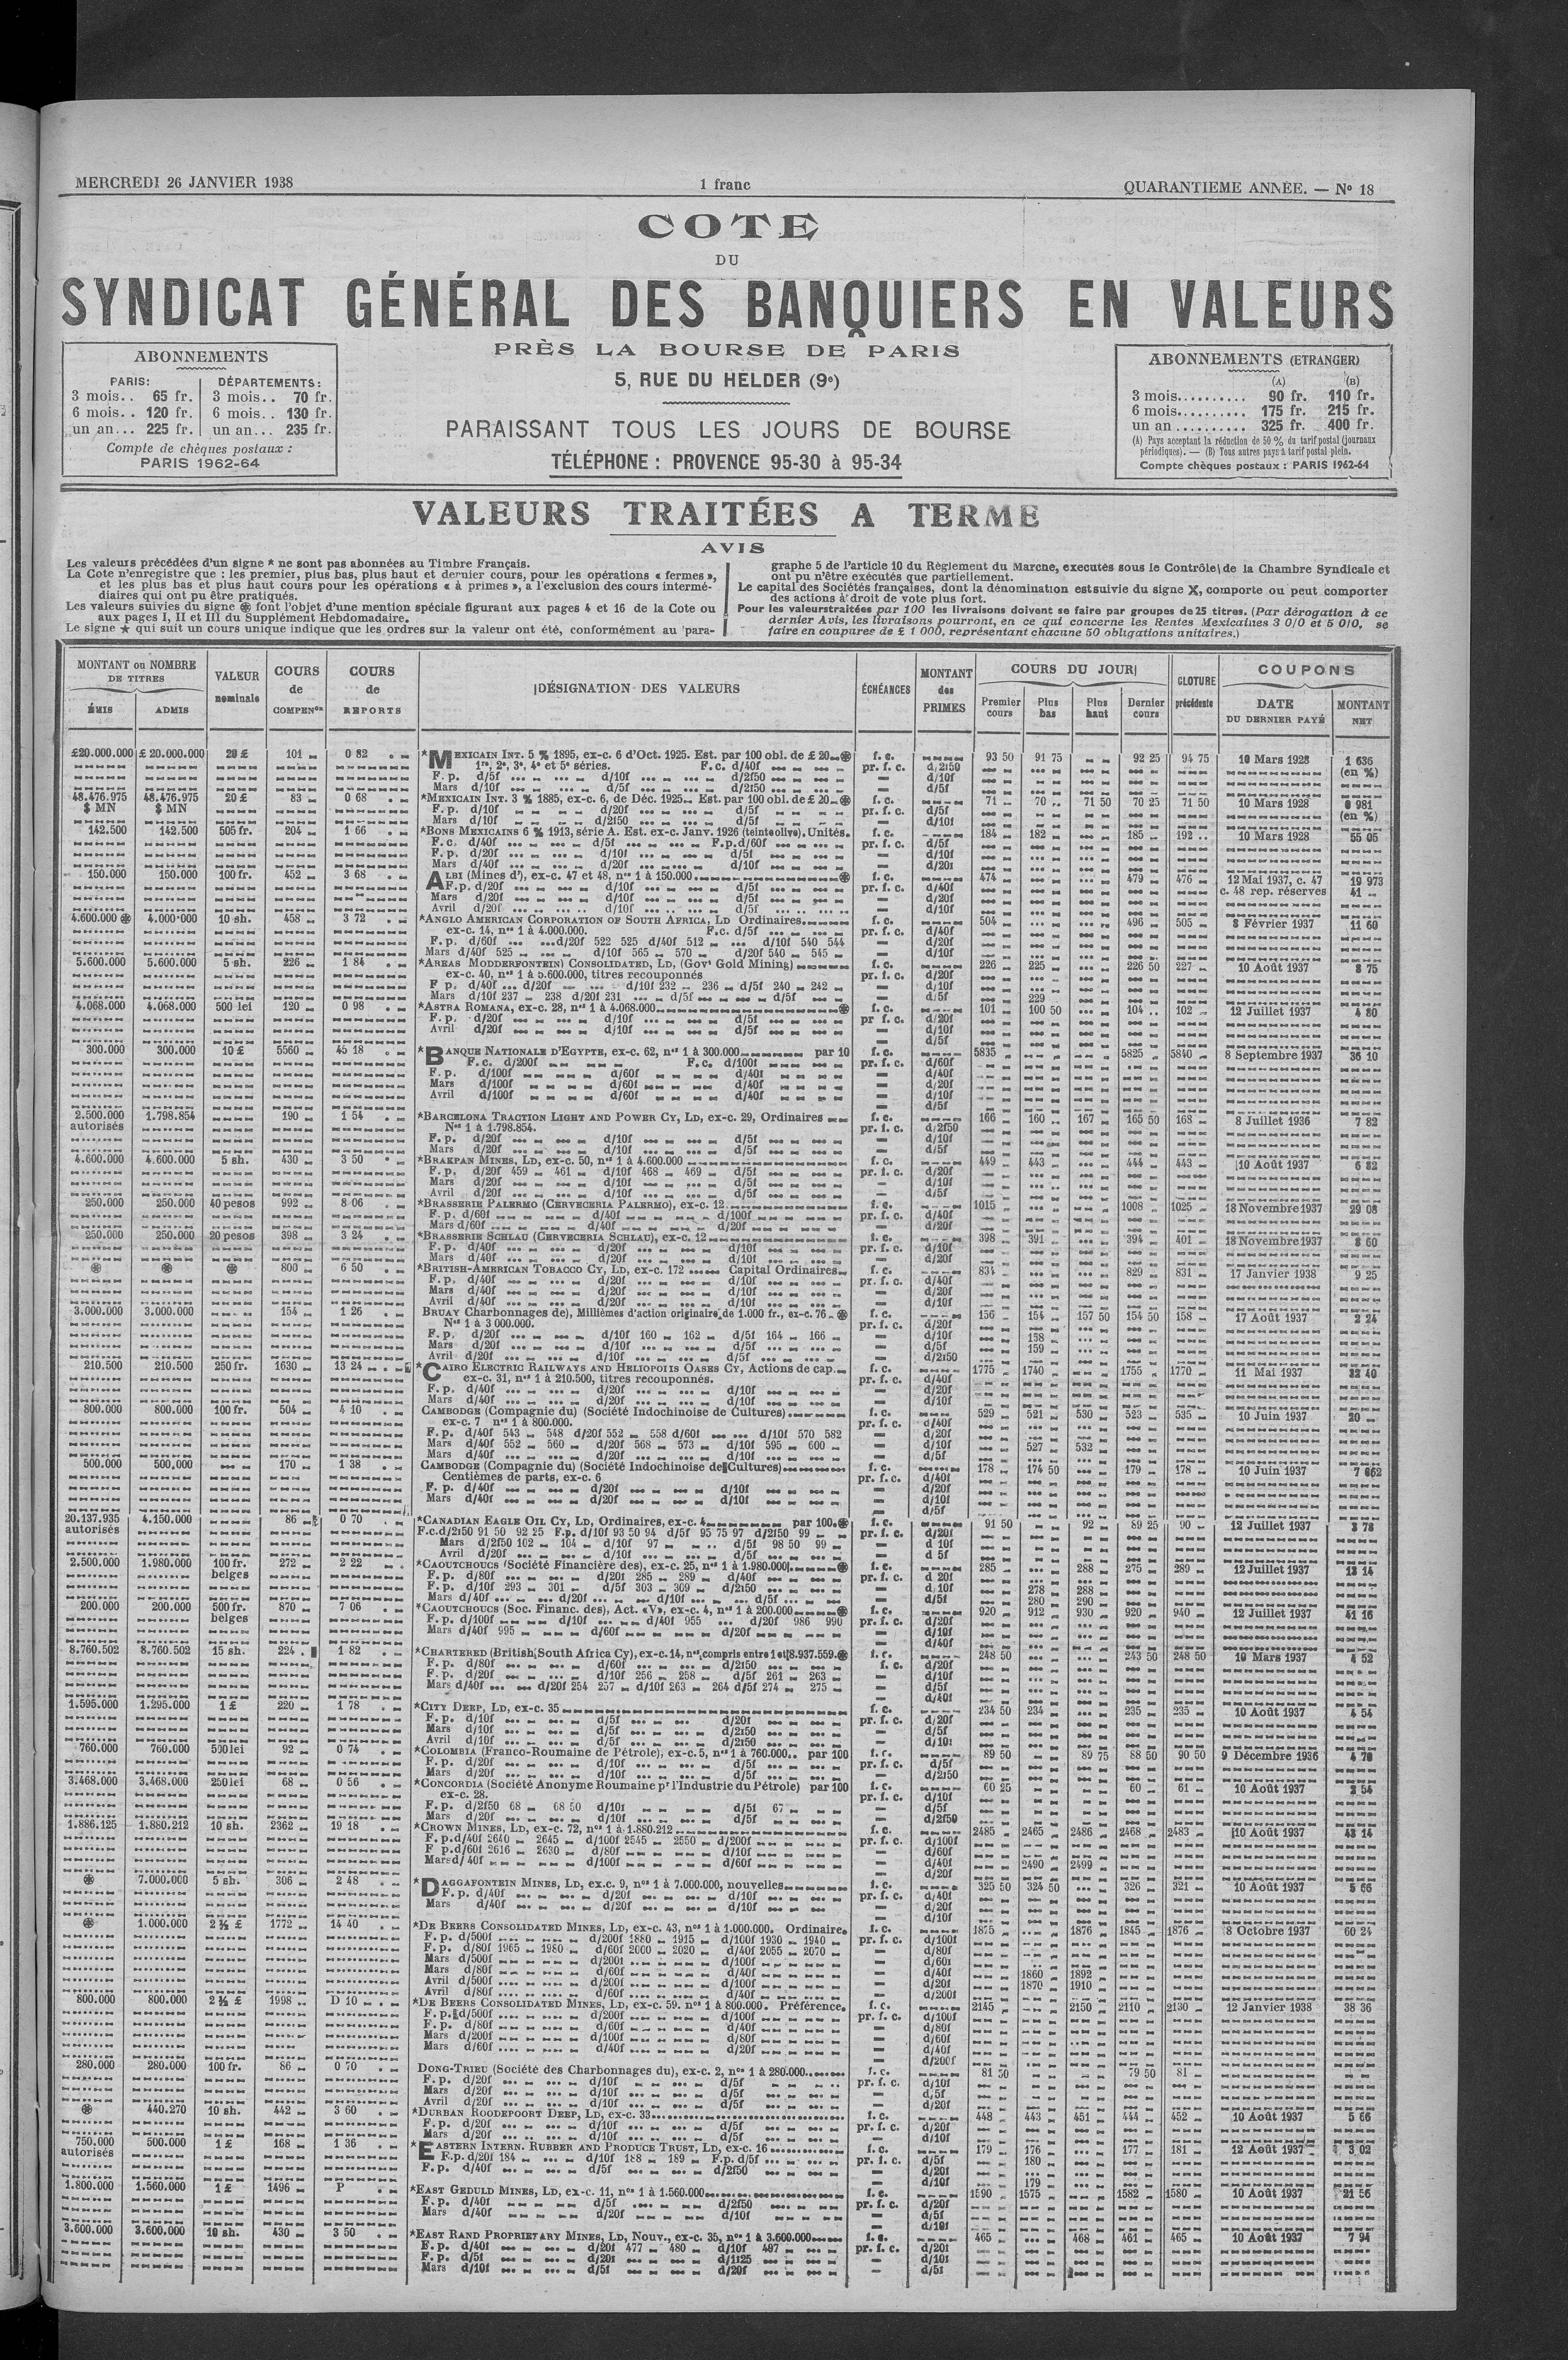 MERCREDI 26 JANVIER 1938
1 franc
QUARANTIEME ANNÉE. — No 18
COTE
DU
SYNDICAT GÉNÉRAL DES BANQUIERS EN VALEURS
PRÈS LA BOURSE DE PARIS
5, RUE DU HELDER (9e)
PARAISSANT TOUS LES JOURS DE BOURSE
TÉLÉPHONE : PROVENCE 95-30 à 95-34
ABONNEMENTS
PARIS: DÉPARTEMENTS:
3 mois.. 65 fr. 3 mois.. 70 fr.
6 mois.. 120 fr. 6 mois.. 130 fr.
un an... 225 fr. un an... 235 fr.
Compte de chèques postaux :
PARIS 1962-64
ABONNEMENTS (ETRANGER)
(A) (B)
3 mois.......... 90 fr. 110 fr.
6 mois.......... 175 fr. 215 fr.
un an .......... 325 fr. 400 fr.
(A) Pays acceptant la réduction de 50 % du tarif postal (journaux
périodiques). — (B) Tous autres pays à tarif postal plein.
Compte chèques postaux : PARIS 1962-64
VALEURS TRAITÉES A TERME
AVIS
Les valeurs précédées d'un signe * ne sont pas abonnées au Timbre Français.
La Cote n'enregistre que : les premier, plus bas, plus haut et dernier cours, pour les opérations « fermes »,
et les plus bas et plus haut cours pour les opérations « à primes », a l'exclusion des cours intermé-
diaires qui ont pu être pratiqués.
Les valeurs suivies du signe ⊛ font l'objet d'une mention spéciale figurant aux pages 4 et 16 de la Cote ou
aux pages I, II et III du Supplément Hebdomadaire.
Le signe ★ qui suit un cours unique indique que les ordres sur la valeur ont été, conformément au para-
graphe 5 de l'article 10 du Règlement du Marché, executés sous le Contrôle de la Chambre Syndicale et
ont pu n'être exécutés que partiellement.
Le capital des Sociétés françaises, dont la dénomination est suivie du signe X, comporte ou peut comporter
des actions à droit de vote plus fort.
Pour les valeurs traitées par 100 les livraisons doivent se faire par groupes de 25 titres. (Par dérogation à ce
dernier Avis, les livraisons pourront, en ce qui concerne les Rentes Mexicaines 3 0/0 et 5 0/0, se
faire en coupures de £ 1 000, représentant chacune 50 obligations unitaires.)
MONTANT ou NOMBRE DE TITRES
ÉMIS ADMIS
VALEUR nominale
COURS de COMPENon
COURS de REPORTS
DÉSIGNATION DES VALEURS
ÉCHÉANCES
MONTANT des PRIMES
COURS DU JOUR
Premier cours Plus bas Plus haut Dernier cours
CLOTURE précédente
COUPONS
DATE DU DERNIER PAYÉ
MONTANT NET
£20.000.000 £ 20.000.000 20 £ 101 0 82 *MEXICAIN INT. 5 % 1895, ex-c. 6 d'Oct. 1925. Est. par 100 obl. de £ 20 ⊛ f. c. 93 50 91 75 92 25 94 75 10 Mars 1928 1 636
1re, 2e, 3e, 4e et 5e séries. F.c. d/40f pr. f. c. d/2f50 (en %)
F. p. d/5f d/10f d/2f50 — d/10f
Mars d/10f d/5f d/2f50 — d/5f
48.476.975 48.476.975 20 £ 83 0 68 *MEXICAIN INT. 3 % 1885, ex-c. 6, de Déc. 1925 Est. par 100 obl. de £ 20 ⊛ f. c. 71 70 71 50 70 25 71 50 10 Mars 1928 981
$ MN $ MN F. p. d/10f d/20f d/5f pr. f. c. d/5f (en %)
Mars d/10f d/2f50 d/5f — d/10f
142.500 142.500 505 fr. 204 1 66 *BONS MEXICAINS 6 % 1913, série A. Est. ex-c. Janv. 1926 (teinte olive). Unités. f. c. 184 182 185 192 10 Mars 1928 55 05
F. c. d/40f d/5f F.p. d/60f pr. f. c. d/5f
F. p. d/20f d/10f d/5f — d/10f
Mars d/40f d/20f d/10f — d/20f
150.000 150.000 100 fr. 452 3 68 ALBI (Mines d'), ex-c. 47 et 48, nos 1 à 150.000 ⊛ f. c. 474 479 476 12 Mai 1937, c. 47 19 973
F. p. d/20f d/10f d/5f pr. f. c. d/40f c. 48 rep. réserves 41
Mars d/20f d/10f d/5f — d/20f
Avril d/20f d/10f d/5f — d/10f
4.600.000 ⊛ 4.000.000 10 sh. 458 3 72 *ANGLO AMERICAN CORPORATION OF SOUTH AFRICA, LD Ordinaires f. c. 504 496 505 8 Février 1937 11 60
ex-c. 14, nos 1 à 4.000.000. F.c. d/5f pr. f. c. d/40f
F. p. d/60f d/20f 522 525 d/40f 512 d/10f 540 544 — d/20f
Mars d/40f 525 d/10f 565 570 d/20f 540 545 — d/10f
5.600.000 5.600.000 5 sh. 226 1 84 *AREAS MODDERFONTEIN) CONSOLIDATED, LD, (Govt Gold Mining) f. c. 226 225 226 50 227 10 Août 1937 8 75
ex-c. 40, nos 1 à 5.600.000, titres recouponnés pr. f. c. d/20f
F p. d/40f d/20f d/10f 232 236 d/5f 240 242 — d/10f
Mars d/10f 237 238 d/20f 231 d/5f d/5f — d/5f 229
4.068.000 4.068.000 500 lei 120 0 98 *ASTRA ROMANA, ex-c. 28, nos 1 à 4.068.000 ⊛ f. c. 101 100 50 104 102 12 Juillet 1937 4 80
F. p. d/20f d/10f d/5f pr f. c. d/20f
Avril d/20f d/10f d/5f — d/10f
— d/5f
300.000 300.000 10 £ 5560 45 18 *BANQUE NATIONALE D'EGYPTE, ex-c. 62, nos 1 à 300.000 par 10 f. c. 5835 5825 5840 8 Septembre 1937 36 10
F. c. d/200f F. c. d/100f pr. f. c. d/60f
F. p. d/100f d/60f d/40f — d/40f
Mars d/100f d/60f d/40f — d/20f
Avril d/100f d/60f d/40f — d/10f
— d/5f
2.500.000 1.798.854 190 1 54 *BARCELONA TRACTION LIGHT AND POWER CY, LD, ex-c. 29, Ordinaires f. c. 166 160 167 165 50 168 8 Juillet 1936 7 82
autorisés Nos 1 à 1.798.854. pr. f. c. d/2f50
F. p. d/20f d/10f d/5f — d/10f
Mars d/20f d/10f d/5f — d/5f
4.600.000 4.600.000 5 sh. 430 3 50 *BRAKPAN MINES, LD, ex-c. 50, nos 1 à 4.600.000 f. c. 449 443 444 443 10 Août 1937 6 82
F. p. d/20f 459 461 d/10f 468 469 d/5f pr. f. c. d/20f
Mars d/20f d/10f d/5f — d/10f
Avril d/20f d/10f d/5f — d/5f
250.000 250.000 40 pesos 992 8 06 *BRASSERIE PALERMO (CERVECERIA PALERMO), ex-c. 12 f. c. 1015 1008 1025 18 Novembre 1937 29 08
F. p. d/60f d/40f d/100f pr. f. c. d/40f
Mars d/60f d/40f d/20f — d/20f
250.000 250.000 20 pesos 398 3 24 *BRASSERIE SCHLAU (CERVECERIA SCHLAU), ex-c. 12 f. c. 398 391 394 401 18 Novembre 1937 8 60
F. p. d/40f d/20f d/10f pr. f. c. d/10f
Mars d/40f d/20f d/10f — d/20f
⊛ ⊛ ⊛ 800 6 50 *BRITISH-AMERICAN TOBACCO CY, LD, ex-c. 172 Capital Ordinaires f. c. 834 829 831 17 Janvier 1938 9 25
F. p. d/40f d/20f d/10f pr. f. c. d/40f
Mars d/40f d/20f d/10f — d/20f
Avril d/40f d/20f d/10f — d/10f
3.000.000 3.000.000 154 1 26 BRUAY Charbonnages de), Millièmes d'action originaire de 1.000 fr., ex-c. 76 ⊛ f. c. 156 154 157 50 154 50 158 17 Août 1937 2 24
Nos 1 à 3 000.000. pr. f. c. d/20f
F. p. d/20f d/10f 160 162 d/5f 164 166 — d/10f 158
Mars d/20f d/10f d/5f — d/5f 159
Avril d/20f d/10f d/5f — d/2f50
210.500 210.500 250 fr. 1630 13 24 *CAIRO ELECTRIC RAILWAYS AND HELIOPOLIS OASES CY, Actions de cap. f. c. 1775 1740 1755 1770 11 Mai 1937 32 40
ex-c. 31, nos 1 à 210.500, titres recouponnés. pr. f. c. d/40f
F. p. d/40f d/20f d/10f — d/20f
Mars d/40f d/20f d/10f — d/10f
800.000 800.000 100 fr. 504 4 10 CAMBODGE (Compagnie du) (Société Indochinoise de Cultures) f. c. 529 521 530 523 535 10 Juin 1937 20
ex-c. 7 nos 1 à 800.000. pr. f. c. d/40f
F. p. d/40f 543 548 d/20f 552 558 d/60f d/10f 570 582 — d/20f
Mars d/40f 552 560 d/20f 568 573 d/10f 595 600 — d/10f 527 532
Mars d/40f d/20f d/10f — d/5f
500.000 500,000 170 1 38 CAMBODGE (Compagnie du) (Société Indochinoise de Cultures) f. c. 178 174 50 179 178 10 Juin 1937 7 662
Centièmes de parts, ex-c. 6 pr. f. c. d/40f
F. p. d/40f d/20f d/10f — d/20f
Mars d/40f d/20f d/10f — d/10f
— d/5f
20.137.935 4.150.000 86 0 70 *CANADIAN EAGLE OIL CY, LD, Ordinaires, ex-c. 4 par 100. ⊛ f. c. 91 50 92 89 25 90 12 Juillet 1937 3 78
autorisés F.c. d/2f50 91 50 92 25 F.p. d/10f 93 50 94 d/5f 95 75 97 d/2f50 99 pr. f. c. d/20f
Mars d/2f50 102 104 d/10f 97 d/5f 98 50 99 — d 10f
Avril d/20f d/10f d/5f — d 5f
2.500.000 1.980.000 100 fr. 272 2 22 *CAOUTCHOUCS (Société Financière des), ex-c. 25, nos 1 à 1.980.000 ⊛ f. c. 285 288 275 289 12 Juillet 1937 13 14
belges F. p. d/80f d/20f 285 289 d/40f pr. f. c. d 20f
F. p. d/10f 293 301 d/5f 303 309 d/2f50 — d 10f 278 288
Mars d/40f d/20f d/10f d/5f — d/5f 280 290
200.000 200.000 500 fr. 870 7 06 *CAOUTCHOUCS (Soc. Financ. des), Act. «V», ex-c. 4, nos 1 à 200.000 ⊛ f. c. 920 912 930 920 940 12 Juillet 1937 41 16
belges F. p. d/100f d/10f d/40f 955 d/20f 986 990 pr. f. c. d/20f
Mars d/40f 995 d/60f d/20f — d/10f
— d/40f
8.760.502 8.760.502 15 sh. 224 1 82 *CHARTERED (British South Africa Cy), ex-c. 14, nos compris entre 1 et 8.937.559. ⊛ f. c. 248 50 243 50 248 50 10 Mars 1937 4 52
F. p. d/80f d/60f d/2f50 f. c. d/20f
F. p. d/20f d/10f 256 258 d/5f 261 263 — d/10f
Mars d/40f d/20f 254 257 d/10f 263 264 d/5f 274 275 — d/5f
— d/40f
1.595.000 1.295.000 1 £ 220 1 78 *CITY DEEP, LD, ex-c. 35 f. c. 234 50 234 235 235 10 Août 1937 4 54
F. p. d/10f d/5f d/20f pr. f. c. d/20f
Mars d/10f d/5f d/2f50 — d/5f
Avril d/10f d/5f d/2f50 — d/10f
760.000 760.000 500 lei 92 0 74 *COLOMBIA (Franco-Roumaine de Pétrole), ex-c. 5, nos 1 à 760.000.. par 100 f. c. 89 50 89 75 88 50 90 50 9 Décembre 1936 4 70
F. p. d/20f d/10f d/5f pr. f. c. d/5f
Mars d/20f d/10f d/5f — d/2f50
3.468.000 3.468.000 250 lei 68 0 56 *CONCORDIA (Société Anonyme Roumaine pr l'Industrie du Pétrole) par 100 f. c. 60 25 60 61 10 Août 1937 2 54
ex-c. 28. pr. f. c. d/10f
F. p. d/2f50 68 68 50 d/10f d/5f 67 — d/5f
Mars d/20f d/10f d/5f — d/2f50
1.886.125 1.880.212 10 sh. 2362 19 18 *CROWN MINES, LD, ex-c. 72, nos 1 à 1.880.212 f. c. 2485 2465 2486 2468 2483 10 Août 1937 43 14
F. p. d/40f 2640 2645 d/100f 2545 2550 d/200f pr. f. c. d/100f
F p. d/60f 2616 2630 d/80f d/10f — d/60f
Mars d/ 40f d/100f d/60f — d/40f 2490 2499
— d/20f
⊛ 7.000.000 5 sh. 306 2 48 *DAGGAFONTEIN MINES, LD, ex.c. 9, nos 1 à 7.000.000, nouvelles f. c. 325 50 324 50 326 321 10 Août 1937 5 66
F. p. d/40f d/20f d/10f pr. f. c. d/40f
Mars d/40f d/20f d/10f — d/20f
— d/10f
⊛ 1.000.000 2 ½ £ 1772 14 40 *DE BEERS CONSOLIDATED MINES, LD, ex-c. 43, nos 1 à 1.000.000. Ordinaire. f. c. 1875 1876 1845 1876 8 Octobre 1937 60 24
F. p. d/500f d/200f 1880 1915 d/100f 1930 1940 pr. f. c. d/100f
F. p. d/80f 1965 1980 d/60f 2000 2020 d/40f 2055 2070 — d/80f
Mars d/500f d/200f d/100f — d/60f
Mars d/80f d/60f d/40f — d/40f 1860 1892
Avril d/500f d/200f d/100f — d/20f 1870 1910
Avril d/80f d/60f d/40f — d/200f
800.000 800.000 2 ½ £ 1998 D 10 *DE BEERS CONSOLIDATED MINES, LD, ex-c. 59. nos 1 à 800.000. Préférence. f. c. 2145 2150 2110 2130 12 Janvier 1938 38 36
F. p. d/500f d/200f d/100f pr. f. c. d/100f
F. p. d/80f d/60f d/40f — d/80f
Mars d/200f d/100f d/80f — d/60f
Mars d/60f d/40f d/20f — d/40f
— d/200f
280.000 280.000 100 fr. 86 0 70 DONG-TRIEU (Société des Charbonnages du), ex-c. 2, nos 1 à 280.000 f. c. 81 50 79 50 81
F. p. d/20f d/10f d/5f pr. f. c. d/10f
Mars d/20f d/10f d/5f — d/5f
Avril d/20f d/10f d/5f — d/20f
⊛ 440.270 10 sh. 442 3 60 *DURBAN ROODEPOORT DEEP, LD, ex-c. 33 f. c. 448 443 451 444 452 10 Août 1937 5 66
F. p. d/20f d/10f d/5f pr. f. c. d/20f
Mars d/20f d/10f d/5f — d/10f
750.000 500.000 1 £ 168 1 36 *EASTERN INTERN. RUBBER AND PRODUCE TRUST, LD, ex-c. 16 f. c. 179 176 177 181 12 Août 1937 3 02
autorisés F.p. d/20f 184 d/10f 188 189 F.p. d/5f pr. f. c. d/5f 180
F. p. d/40f d/5f d/2f50 — d/20f
— d/10f 179
1.800.000 1.560.000 1 £ 1496 P *EAST GEDULD MINES, LD, ex-c. 11, nos 1 à 1.560.000 f. c. 1590 1575 1582 1580 10 Août 1937 21 56
F. p. d/40f d/5f d/2f50 pr. f. c. d/20f
Mars d/40f d/20f d/10f — d/5f
— d/10f
3.600.000 3.600.000 10 sh. 430 3 50 *EAST RAND PROPRIETARY MINES, LD, Nouv., ex-c. 35, nos 1 à 3.600.000 f. c. 465 468 461 465 10 Août 1937 7 94
F. p. d/40f d/20f 477 480 d/10f 497 pr. f. c. d/20f
F. p. d/5f d/20f d/1f25 — d/10f
Mars d/10f d/5f d/20f — d/5f